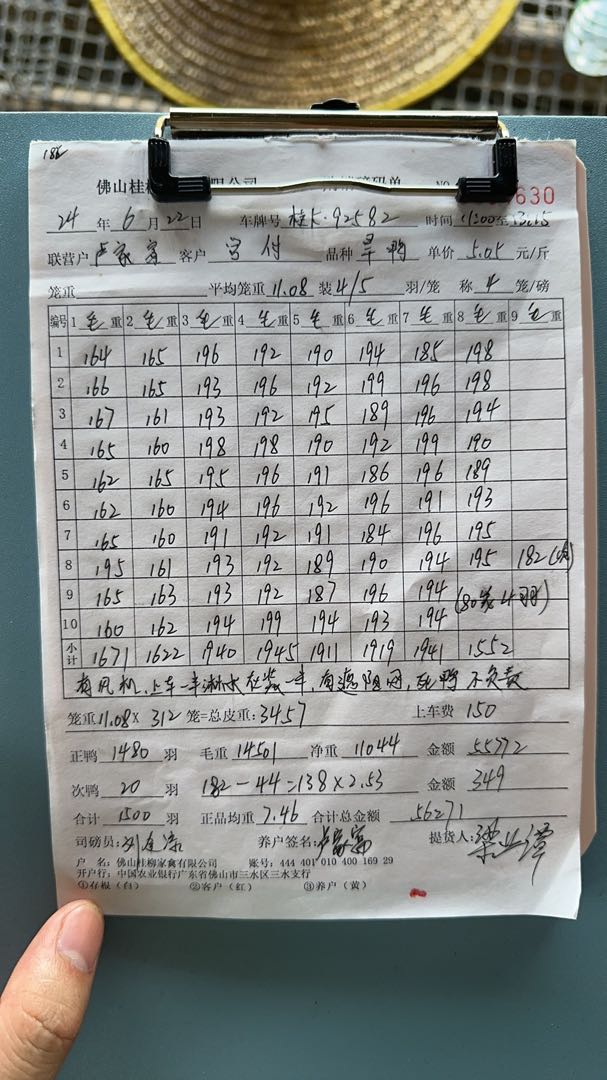 186
佛山桂柳 限公司 码单 NO 630
24 年 6 月 22 日 车牌号 桂K·92582 时间 11:00 至 13:15
联营户 卢家富 客户 品种 旱鸭 单价 5.05 元/斤
笼重 平均笼重 11.08 装 4/5 羽/笼 称 4 笼/磅
编号 1 毛重 2 毛重 3 毛重 4 毛重 5 毛重 6 毛重 7 毛重 8 毛重 9 毛重
1 164 165 196 192 190 194 185 198
2 166 165 193 196 192 199 196 198
3 167 161 193 192 195 189 196 194
4 165 160 198 198 190 192 199 190
5 162 165 195 196 191 186 196 189
6 162 160 194 196 192 196 191 193
7 165 160 191 192 191 184 196 195
8 195 161 193 192 189 190 194 195 182(次)
9 165 163 193 192 187 196 194 (80笼4羽)
10 160 162 194 199 194 193 194
小计 1671 1622 1940 1945 1911 1919 1941 1552
有风机,上车一半淋水在装一半,有遮阴网,死鸭不负责
笼重 11.08 × 312 笼=总皮重: 3457 上车费 150
正鸭 1480 羽 毛重 14501 净重 11044 金额 55772
次鸭 20 羽 182-44=138×2.53 金额 349
合计 1500 羽 正品均重 7.46 合计总金额 56271
司磅员: 养户签名: 卢家富 提货人: 梁业潭
户 名: 佛山桂柳家禽有限公司 账号: 444 401 010 400 169 29
开户行: 中国农业银行广东省佛山市三水区三水支行
①存根(白) ②客户(红) ③养户(黄)